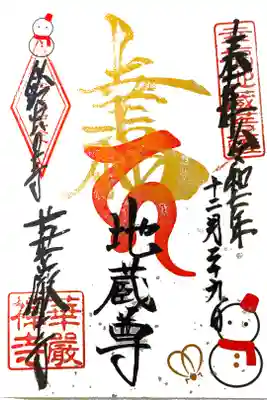 奉拝 令和七年
十二月二十九日
地蔵尊
鈴虫の寺
華厳寺
華嚴
禅寺